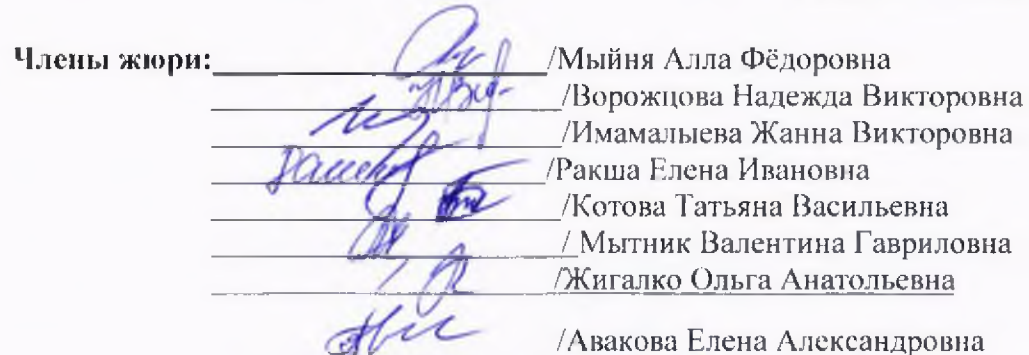 Члены жюри: /Мыйня Алла Фёдоровна
/Ворожцова Надежда Викторовна
/Имамалыева Жанна Викторовна
/Ракша Елена Ивановна
/Котова Татьяна Васильевна
/ Мытник Валентина Гавриловна
/Жигалко Ольга Анатольевна
/Авакова Елена Александровна